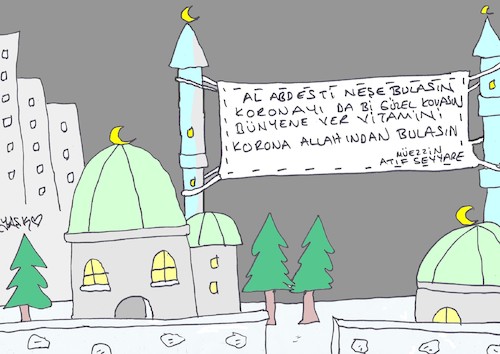 AL ABDESTİ NEŞE BULASIN
KORONAYI DA Bİ GÜZEL KOVASIN
BÜNYENE VER VİTAMİNİ
KORONA ALLAHINDAN BULASIN
MÜEZZİN
ATIF SEYYARE
YASK